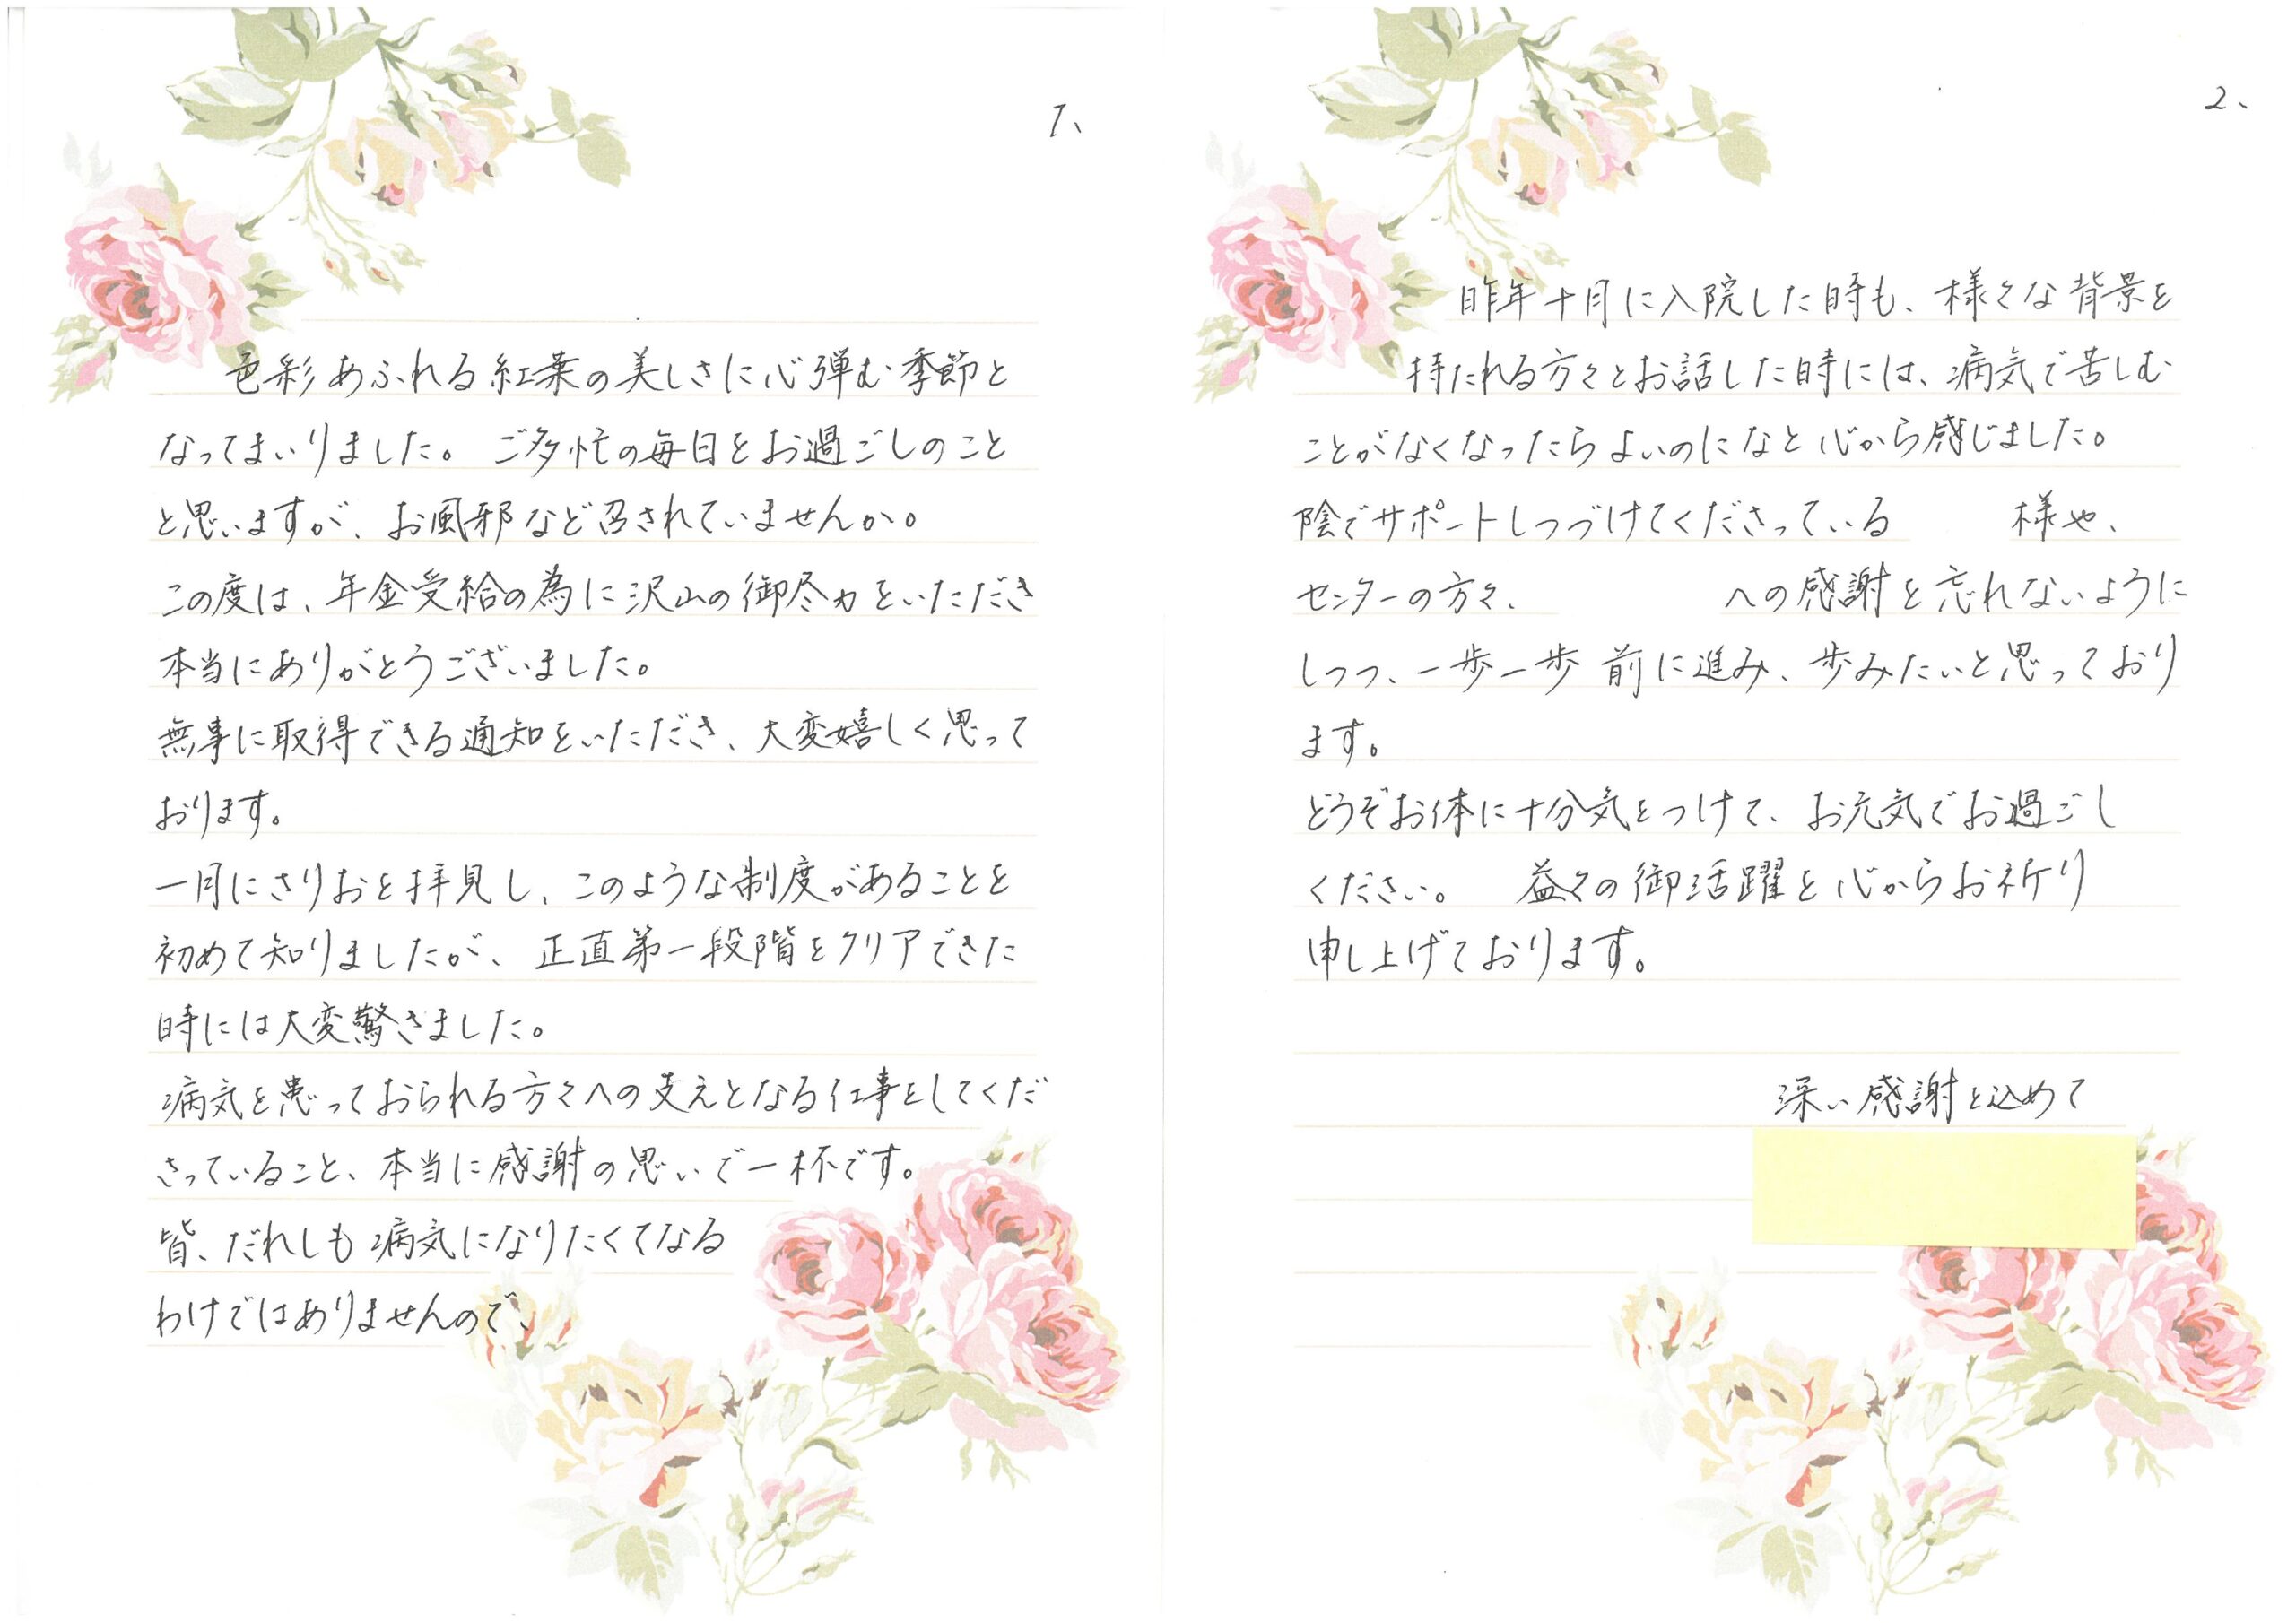 1、
色彩あふれる紅葉の美しさに心弾む季節と
なってまいりました。ご多忙の毎日をお過ごしのこと
と思いますが、お風邪など召されていませんか。
この度は、年金受給の為に沢山の御尽力をいただき
本当にありがとうございました。
無事に取得できる通知をいただき、大変嬉しく思って
おります。
一月にさりおを拝見し、このような制度があることを
初めて知りましたが、正直第一段階をクリアできた
時には大変驚きました。
病気を患っておられる方々への支えとなる仕事をしてくだ
さっていること、本当に感謝の思いで一杯です。
皆、だれしも病気になりたくてなる
わけではありませんので、
2、
昨年十月に入院した時も、様々な背景を
持たれる方々とお話した時には、病気で苦しむ
ことがなくなったらよいのになと心から感じました。
陰でサポートしつづけてくださっている 様や、
センターの方々、 への感謝を忘れないように
しつつ、一歩一歩前に進み、歩みたいと思っており
ます。
どうぞお体に十分気をつけて、お元気でお過ごし
ください。 益々の御活躍を心からお祈り
申し上げております。
深い感謝を込めて